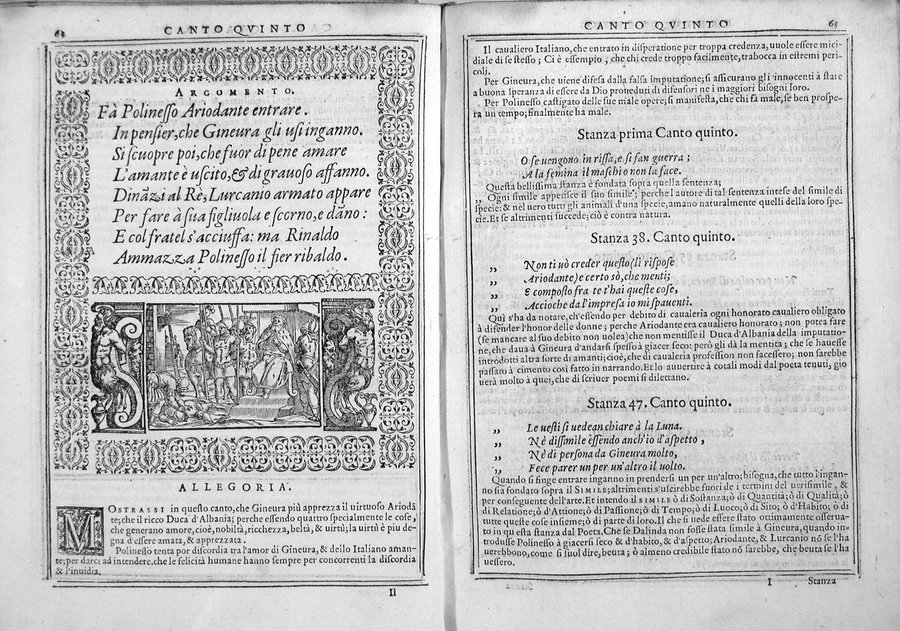 62
CANTO QVINTO
ARGOMENTO.
Fà Polinesso Ariodante entrare.
In pensier, che Gineura gli usi inganno.
Si scuopre poi, che fuor di pene amare
L'amante è uscito, & di grauoso affanno.
Dinãzi al Rè, Lurcanio armato appare
Per fare à sua figliuola e scorno, e dãno:
E col fratel s'acciuffa: ma Rinaldo
Ammazza Polinesso il fier ribaldo.
ALLEGORIA.
MOSTRASSI in questo canto, che Gineura più apprezza il uirtuoso Ariodã
te; che il ricco Duca d'Albania; perche essendo quattro specialmente le cose,
che generano amore, cioè, nobiltà, ricchezza, beltà, & uirtù; la uirtù è piu de-
gna d'essere amata, & apprezzata.
Polinesso tenta por discordia tra l'amor di Gineura, & dello Italiano aman-
te; per darci ad intendere, che le felicità humane hanno sempre per concorrenti la discordia
& l'inuidia.
Il
CANTO QVINTO
65
Il caualiero Italiano, che entrato in disperatione per troppa credenza, uuole essere mici-
diale di se stesso; Ci è essempio, che chi crede troppo facilmente, trabocca in estremi peri-
coli.
Per Gineura, che uiene difesa dalla falsa imputatione; si assicurano gli innocenti à stare
a buona speranza di essere da Dio proueduti di difensori ne i maggiori bisogni loro.
Per Polinesso castigato delle sue male opere; si manifesta, che chi fà male, se ben prospe-
ra un tempo; finalmente ha male.
Stanza prima Canto quinto.
O se uengono in rissa, e si fan guerra;
A la femina il maschio non la face.
Questa bellissima stanza è fondata sopra quella sentenza;
„ Ogni simile appetisce il suo simile; perche l'autore di tal sentenza intese del simile di
specie: & nel uero tutti gli animali d'una specie, amano naturalmente quelli della loro spe-
cie. Et se altrimenti succede; ciò è contra natura.
Stanza 38. Canto quinto.
„ Non ti uò creder questo (li rispose
„ Ariodante) e certo sò, che menti;
„ E composto fra te t'hai queste cose,
„ Accioche da l'impresa io mi spauenti.
Quì s'ha da notare, ch'essendo per debito di caualeria ogni honorato caualiero obligato
à difender l'honor delle donne; perche Ariodante era caualiero honorato; non potea fare
(se mancare al suo debito non uolea) che non mentisse il Duca d'Albania della imputatio-
ne, che daua à Gineura d'andarsi spesso à giacer seco: però gli dà la mentita; che se hauesse
introdotti altra sorte di amanti; cioè, che di caualeria profession non facessero; non sarebbe
passato à cimento così fatto in narrando. Et lo auuertir à cotali modi dal poeta tenuti, gio
uerà molto à quei, che di scriuer poemi si dilettano.
Stanza 47. Canto quinto.
„ Le uesti si uedean chiare à la Luna.
„ Nè dissimile essendo anch'io d'aspetto,
„ Nè di persona da Gineura molto,
„ Fece parer un per un'altro il uolto.
Quando si finge entrare inganno in prendersi un per un'altro; bisogna, che tutto l'ingan-
no sia fondato sopra il SIMILE; altrimenti s'uscirebbe fuori de i termini del uerisimile, &
per conseguente dell'arte. Et intendo il SIMILE ò di Sostanza; ò di Quantità; ò di Qualità; ò
di Relatione; ò d'Attione; ò di Passione; ò di Tempo; ò di Luoco; ò di Sito; ò d'Habito; ò di
tutte queste cose insieme; ò di parte di loro. Il che si uede essere stato ottimamente osserua-
to in questa stanza dal Poeta. Che se Dalinda non fosse stata simile à Gineura, quando in-
trodusse Polinesso à giacersi seco & d'habito, & d'aspetto; Ariodante, & Lurcanio nõ se l'ha
uerebbono, come si suol dire, beuta; ò almeno credibile stato nõ sarebbe, che beuta se l'ha
uessero.
I
Stanza